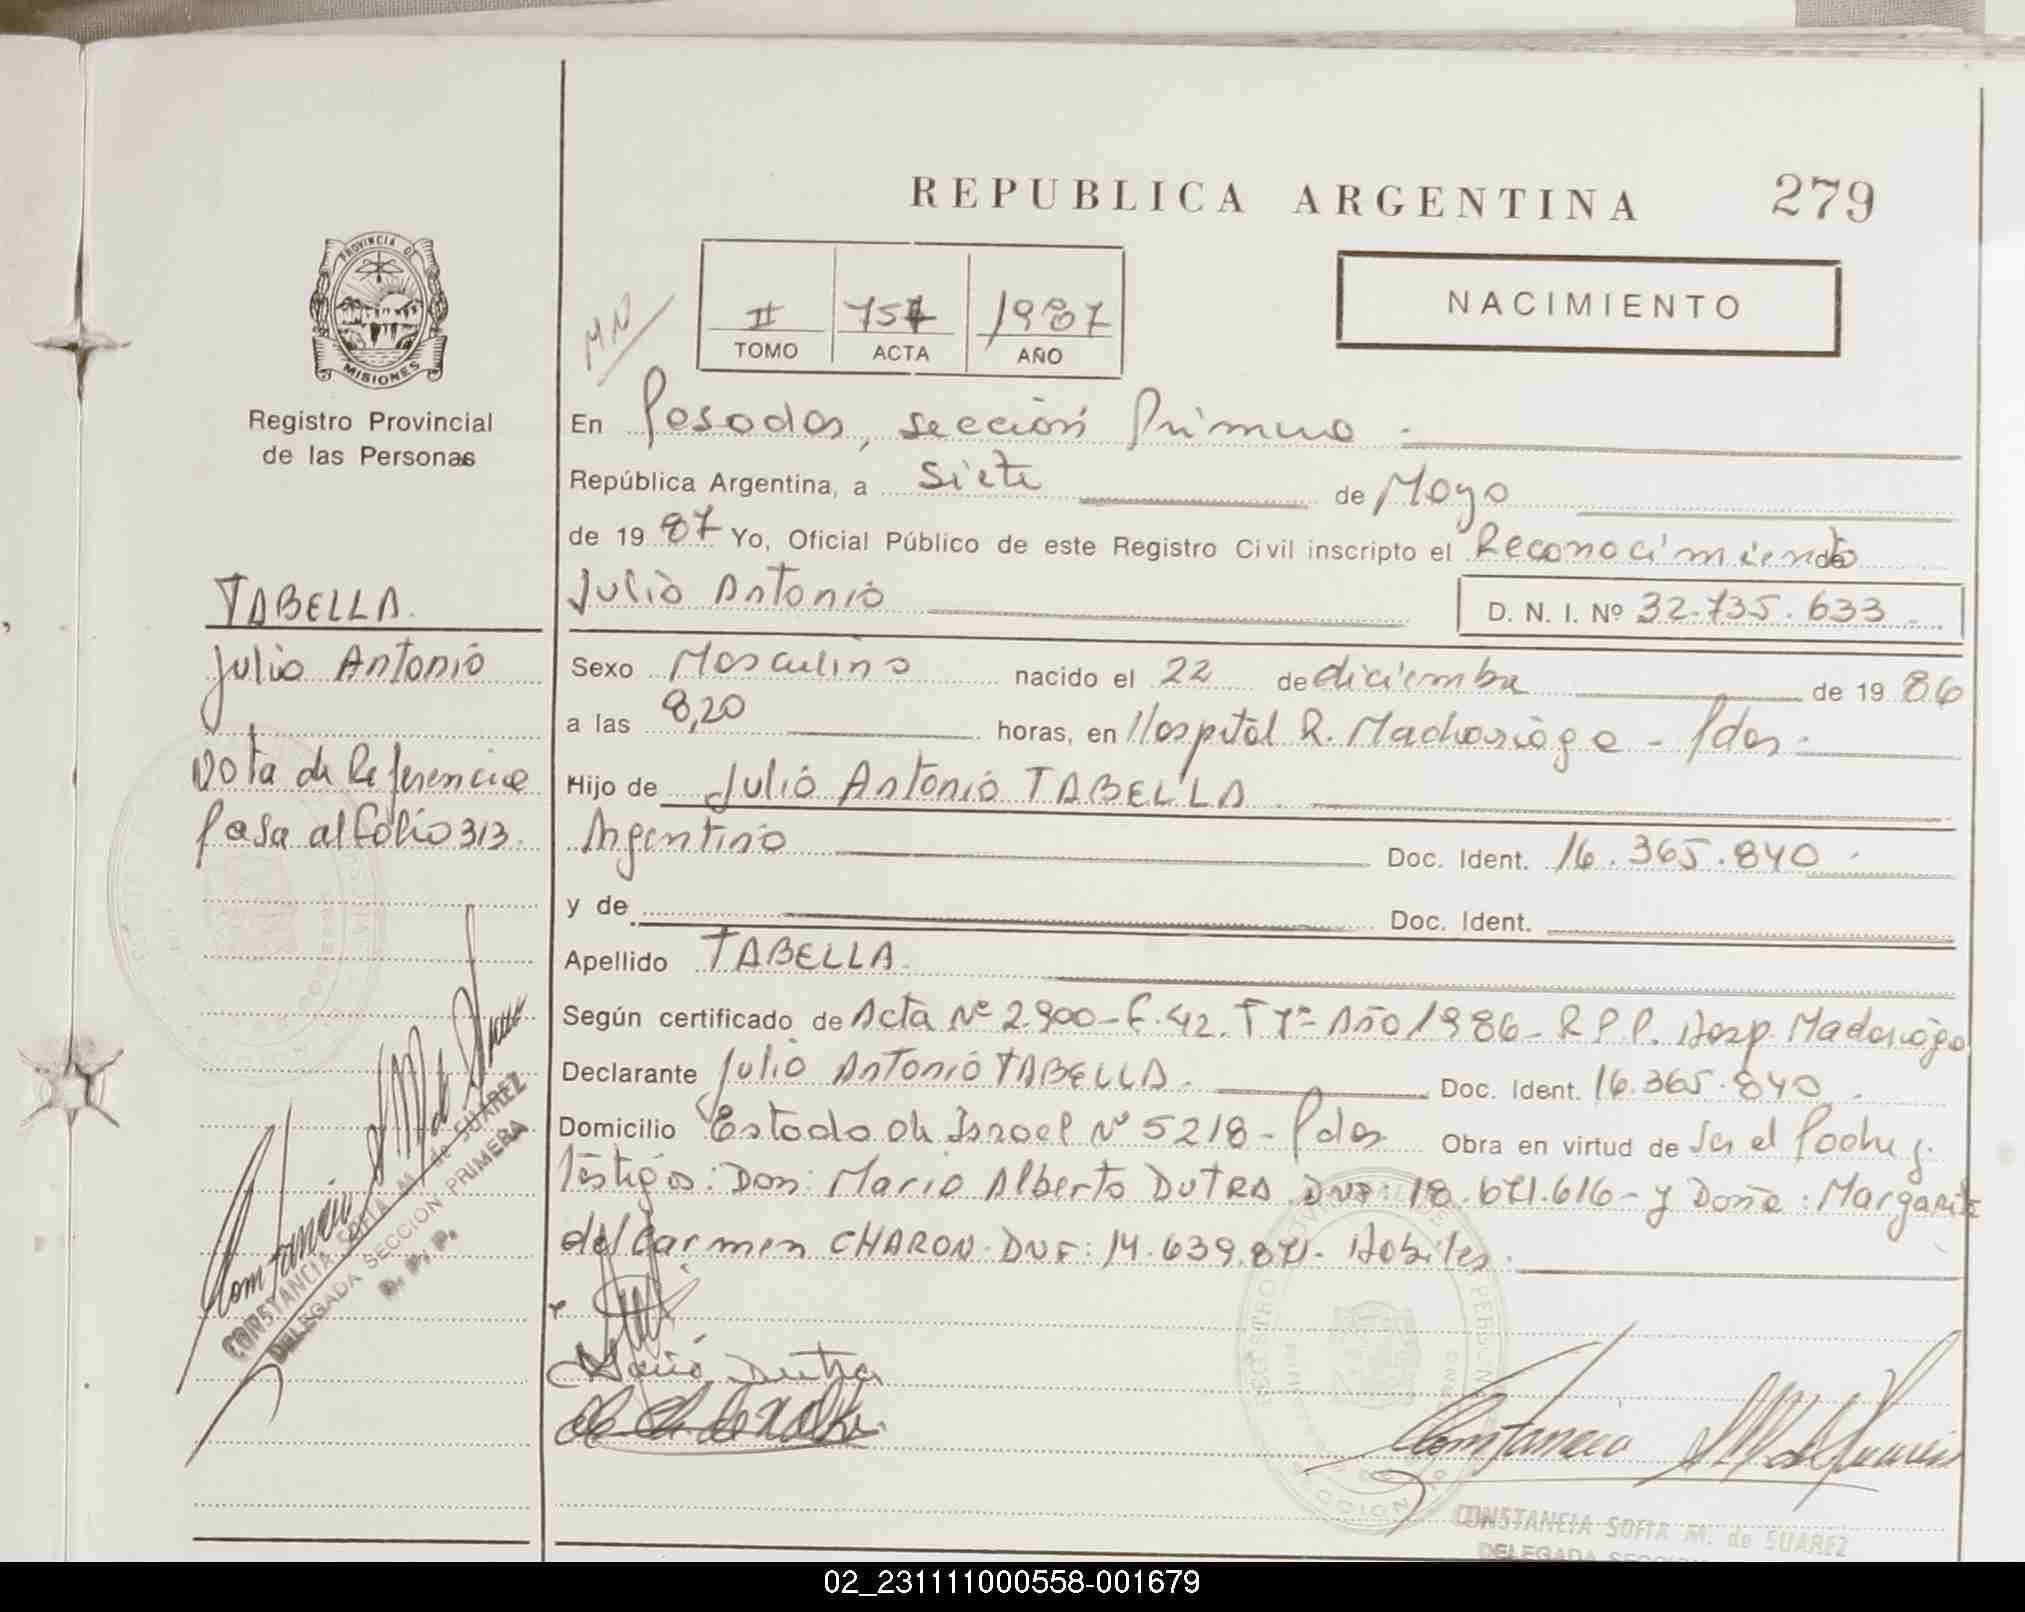 REPUBLICA ARGENTINA 279
PROVINCIA DE
MISIONES
Registro Provincial
de las Personas
II 757 1987
TOMO ACTA AÑO
NACIMIENTO
En Posadas, sección Primera
República Argentina, a Siete de Mayo
de 1987 Yo, Oficial Público de este Registro Civil inscripto el Reconocimiento de
Julio Antonio
D. N. I. Nº 32.735.633
Sexo Masculino nacido el 22 de diciembre de 1986
a las 8,20 horas, en Hospital R. Madariaga - Pdas.
Hijo de Julio Antonio TABELLA
Argentino Doc. Ident. 16.365.840
y de Doc. Ident.
Apellido TABELLA
Según certificado de Acta Nº 2.900-F.42. Año 1986- R P P. Hosp. Madariaga
Declarante Julio Antonio TABELLA. Doc. Ident. 16.365.840
Domicilio Estado de Israel Nº 5218- Pdas Obra en virtud de Ser el Padre y.
Testigos: Don: Mario Alberto DUTRA y Doña: Margarita
del Carmen CHARON. Hábiles.
TABELLA.
Julio Antonio
Nota de Referencia
Pasa al folio 313.
CONSTANCIA SOFIA M. de SUAREZ
DELEGADA SECCION PRIMERA
R. P. P.
Mario Dutra
Constancia
CONSTANCIA SOFIA M. de SUAREZ
DELEGADA
02_231111000558-001679